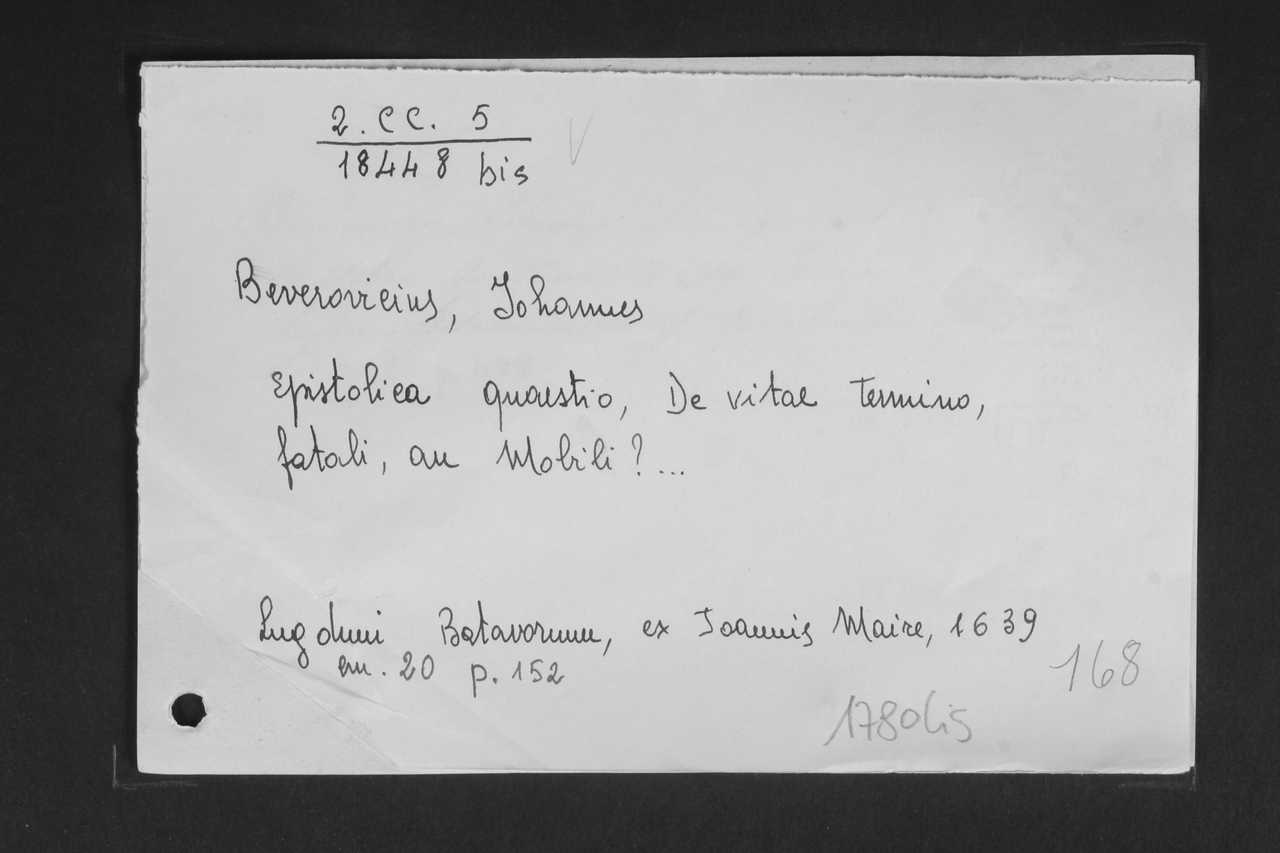 2. CC. 5
18448 bis
V
Beverovicius, Johannes
Epistolica quaestio, De vitae termino,
fatali, an Mobili?...
Lugduni Batavorum, ex Joannis Maire, 1639
cm. 20 p. 152
168
1780bis